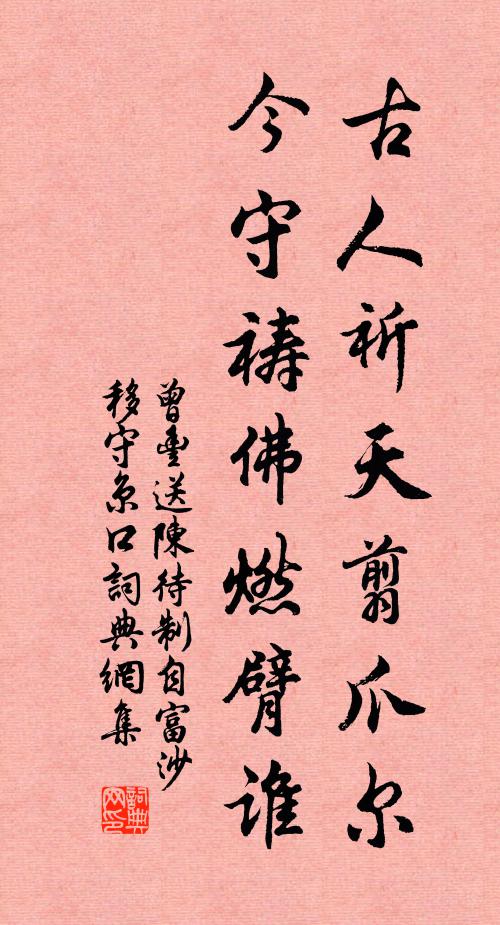 古人祈天翦爪尔
今守祷佛燃臂谁
曾豐送陳待制自富沙
移守京口詞典網集
詞典網印